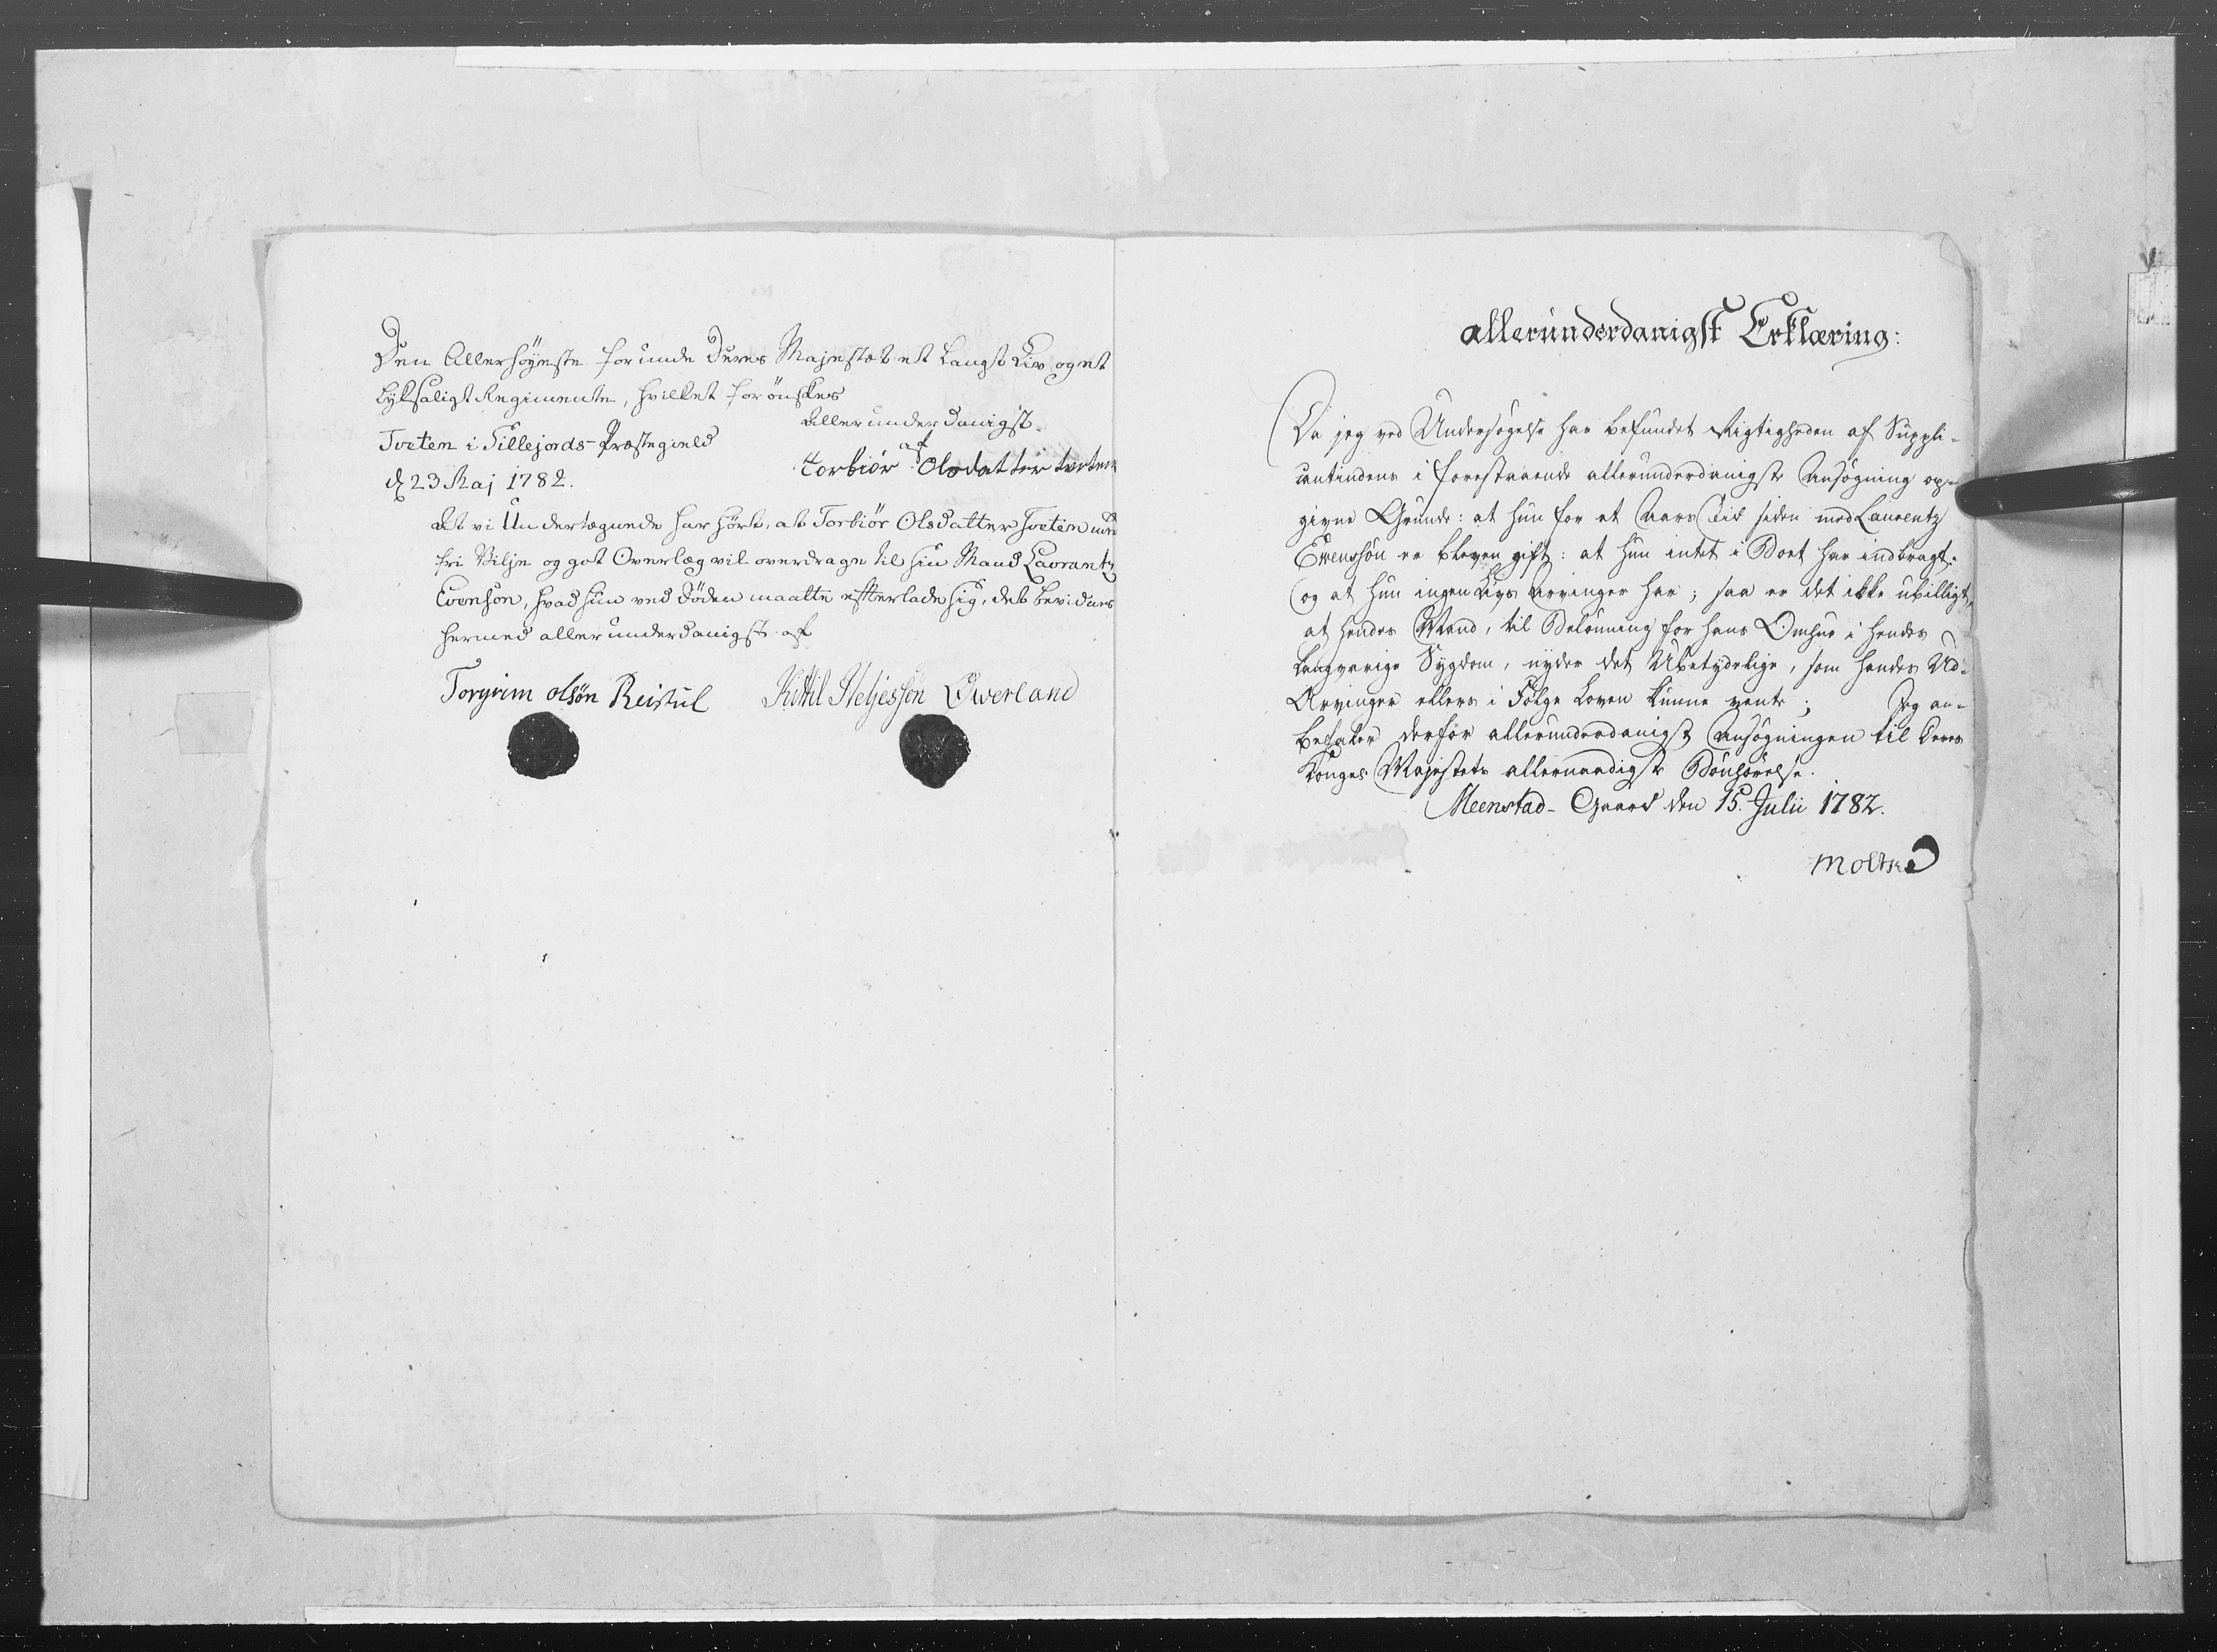 Den Allerhöyeste forunde Deres Majestæt et langt Liv og et
lyksaligt Regimente, hvilket forönskes
allerunderdanigst
Tveten i Tillejords-Præstegield
af
Torbiör Olsdatter tveten
d 23 Maj 1782.
At vi Undertegnede har hört, at Torbiör Olsdatter Tveten med
fri Vilje og got Overlæg vil overdrage til sin Mand Lavrantz
Evensön, hvad hun ved Döden maatte efterlade sig, det bevidnes
hermed allerunderdanigst af
Torgrim olsön Reistul Kittil Heljessön Öwerland
allerunderdanigst Erklæring:
Da jeg ved Undersögelse har befundet Rigtigheden af Suppli-
cantindens i forestaaende allerunderdanigste Ansögning op-
givne Grunde: at hun for et Aars Tid siden med Laurentz
Evensön er bleven gift: at hun intet i Boet har indbragt:
og at hun ingen Livs Arvinger har; saa er det ikke ubilligt,
at hendes Mand, til Belönning for hans Omhue i hendes
langvarige Sygdom, nyder det Ubetydelige, som hendes Ud-
Arvinger ellers i Fölge Loven kunne vente; Jeg an-
befaler derfor allerunderdanigst Ansögningen til Deres
Konges Majestets allernaadigste Bönhörelse.
Meenstad-Gaard den 15. Julii 1782.
Moltke